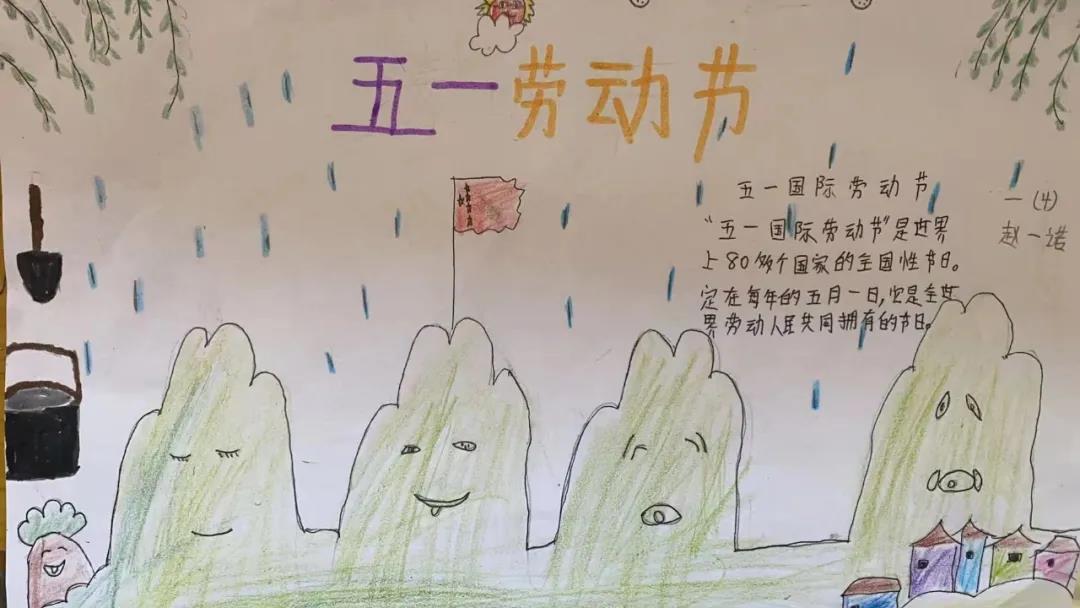 五一劳动节
五一国际劳动节
"五一国际劳动节"是世界
上80多个国家的全国性节日。
定在每年的五月一日,它是全世
界劳动人民共同拥有的节日。
一(4)
赵一诺